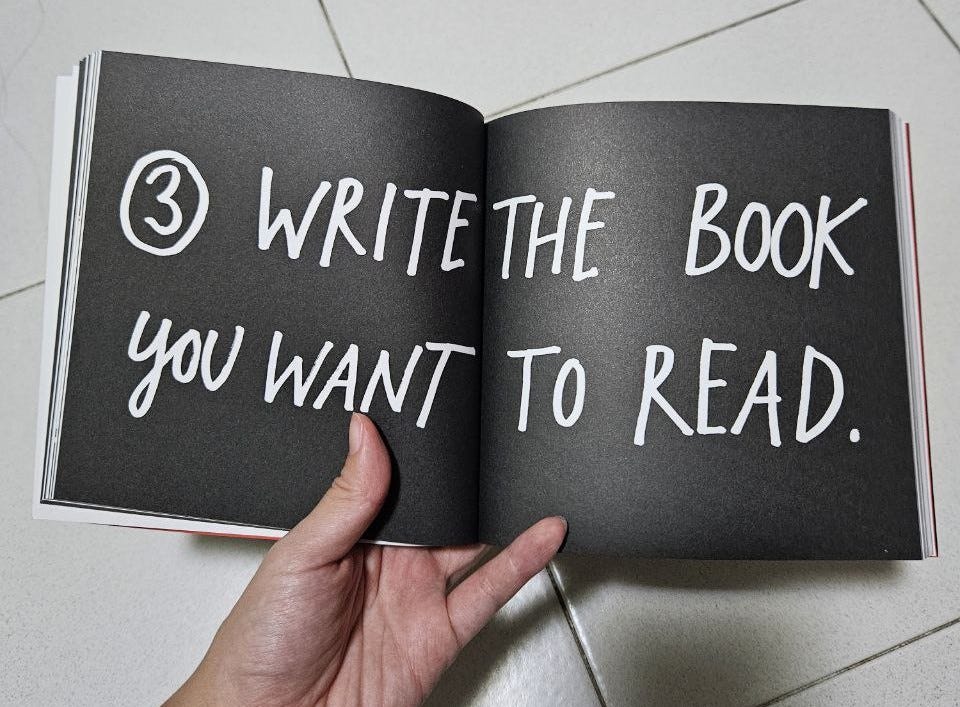 3 WRITE THE BOOK
YOU WANT TO READ.